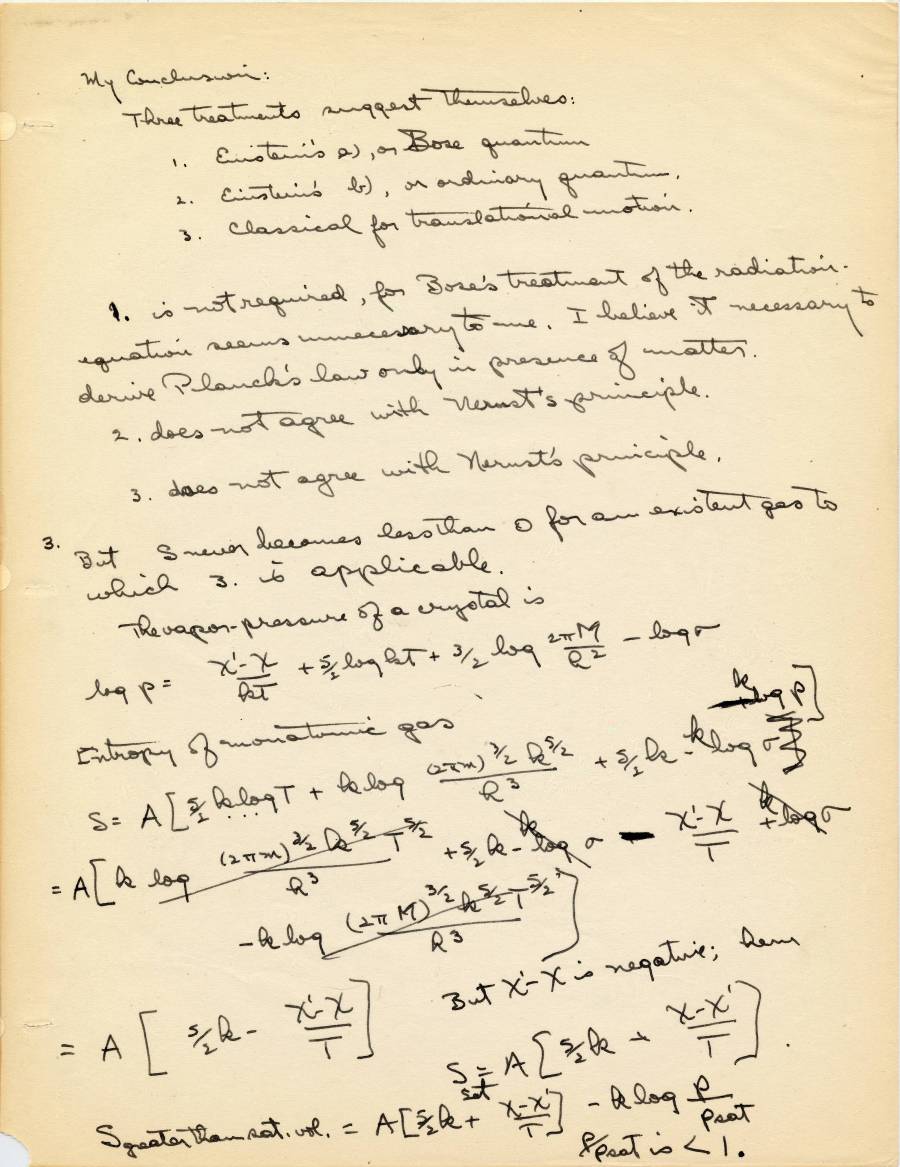 My Conclusion:
Three treatments suggest themselves:
1. Einstein's a), or Bose quantum
2. Einstein's b), or ordinary quantum.
3. Classical for translational motion.
1. is not required, for Bose's treatment of the radiation-
equation seems unnecessary to me. I believe it necessary to
derive Planck's law only in presence of matter.
2. does not agree with Nernst's principle.
3. does not agree with Nernst's principle.
3. But S never becomes less than 0 for an existent gas to
which 3. is applicable.
The vapor-pressure of a crystal is
log p = χ'-χ/kT + 5/2 log kT + 3/2 log 2πM/h² - log σ
Entropy of monatomic gas
S = A[5/2 k log T + k log (2πm)^3/2 k^5/2/h³ + 5/2 k - k log σ - k log p]
= A[k log (2πm)^3/2 k^5/2 T^5/2/h³ + 5/2 k - k log σ - χ'-χ/T + k log σ
- k log (2πM)^3/2 k^5/2 T^5/2/h³]
= A[5/2 k - χ'-χ/T] But χ'-χ is negative; hence
S sat = A[5/2 k + χ-χ'/T].
S greater than sat. vol. = A[5/2 k + χ-χ'/T] - k log p/p sat
p/p sat is < 1.